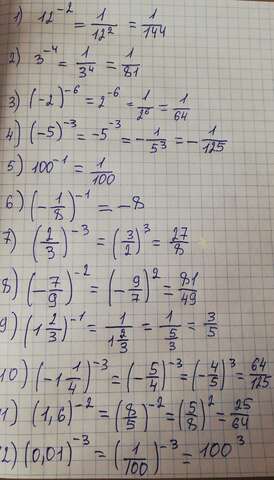 1) 12^{-2} = \frac{1}{12^2} = \frac{1}{144}
2) 3^{-4} = \frac{1}{3^4} = \frac{1}{81}
3) (-2)^{-6} = 2^{-6} = \frac{1}{2^6} = \frac{1}{64}
4) (-5)^{-3} = -5^{-3} = -\frac{1}{5^3} = -\frac{1}{125}
5) 100^{-1} = \frac{1}{100}
6) (-\frac{1}{8})^{-1} = -8
7) (\frac{2}{3})^{-3} = (\frac{3}{2})^3 = \frac{27}{8}
8) (-\frac{7}{9})^{-2} = (-\frac{9}{7})^2 = \frac{81}{49}
9) (1\frac{2}{3})^{-1} = \frac{1}{1\frac{2}{3}} = \frac{1}{\frac{5}{3}} = \frac{3}{5}
10) (-1\frac{1}{4})^{-3} = (-\frac{5}{4})^{-3} = (-\frac{4}{5})^3 = \frac{64}{125}
1) (1,6)^{-2} = (\frac{8}{5})^{-2} = (\frac{5}{8})^2 = \frac{25}{64}
2) (0,01)^{-3} = (\frac{1}{100})^{-3} = 100^3